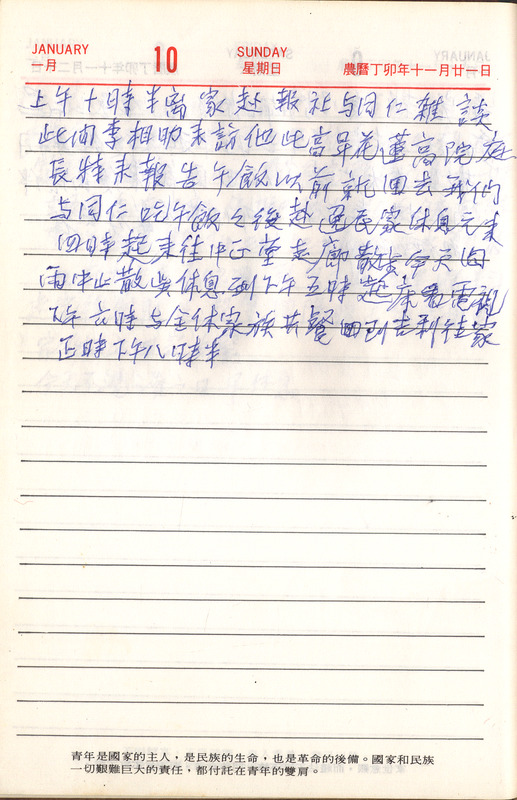 JANUARY
一月
10
SUNDAY
星期日
農曆丁卯年十一月廿一日
上午十時半离家赴報社与同仁雜談
此间李相助来訪他此高昇花蓮高院庭
長特来報告午飯以前就回去我们
与同仁吃午飯之後赴
家休息元来
四時起来往中正堂走廊散步今天因
雨中止散步休息到下午五時起床看電視
下午六時与全体家族共餐回到吉利街家
正時下午八時半
青年是國家的主人，是民族的生命，也是革命的後備。國家和民族
一切艱難巨大的責任，都付託在青年的雙肩。